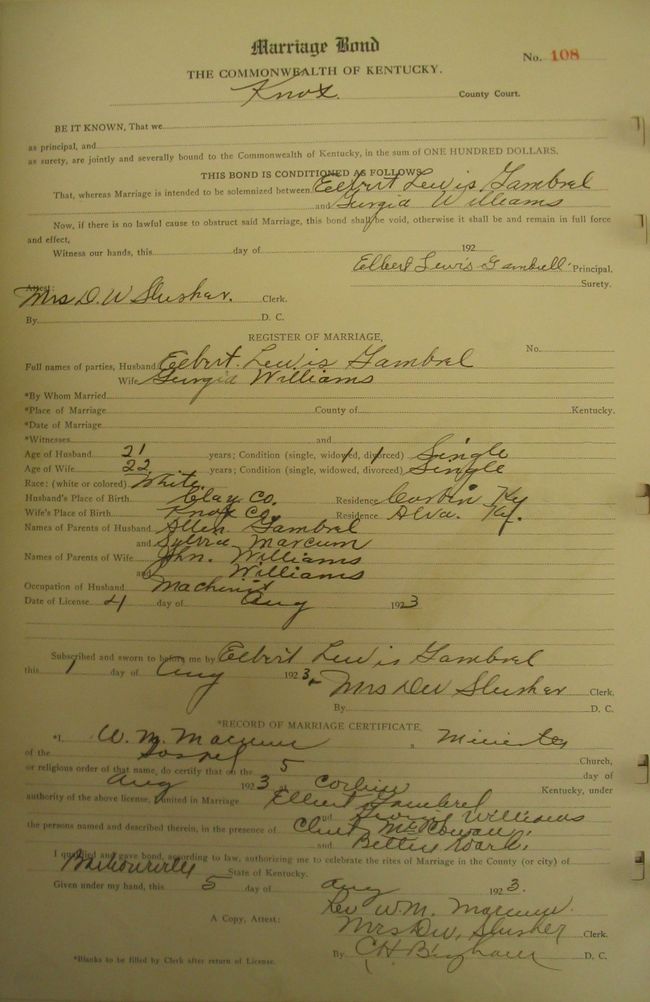 Marriage Bond
No. 108
THE COMMONWEALTH OF KENTUCKY.
Knox County Court.
BE IT KNOWN, That we
as principal, and
as surety, are jointly and severally bound to the Commonwealth of Kentucky, in the sum of ONE HUNDRED DOLLARS.
THIS BOND IS CONDITIONED AS FOLLOWS
That, whereas Marriage is intended to be solemnized between Elbert Lewis Gambrel
and Gurgia Williams
Now, if there is no lawful cause to obstruct said Marriage, this bond shall be void, otherwise it shall be and remain in full force
and effect,
Witness our hands, this day of 192
Elbert Lewis Gambrell Principal,
Surety.
Attest:
Mrs D. W Slusher. Clerk.
By D. C.
REGISTER OF MARRIAGE,
No.
Full names of parties, Husband Elbert Lewis Gambrel
Wife Gurgia Williams
*By Whom Married
*Place of Marriage County of Kentucky.
*Date of Marriage
*Witnesses and
Age of Husband 21 years; Condition (single, widowed, divorced) Single
Age of Wife 22 years; Condition (single, widowed, divorced) Single
Race: (white or colored) White.
Husband's Place of Birth Clay Co. Residence Corbin Ky
Wife's Place of Birth Knox Co. Residence Alva. Ky.
Names of Parents of Husband Allen Gambrel
and Sylvia Marcum
Names of Parents of Wife Jhn. Williams
and Williams
Occupation of Husband Machinist
Date of License 4 day of Aug 1923
Subscribed and sworn to before me by Elbert Lewis Gambrel
this 1 day of Aug 1923, Mrs DW Slusher Clerk.
By D. C.
*RECORD OF MARRIAGE CERTIFICATE,
*I, W. M. Marcum a Minister
of the Gospel Church,
or religious order of that name, do certify that on the 5 day of
Aug 1923 at Corbin Kentucky, under
authority of the above license, united in Marriage Elbert Gambrel
and Williams
the persons named and described therein, in the presence of Clint McCowan,
and Bettie
I qualified and gave bond, according to law, authorizing me to celebrate the rites of Marriage in the County (or city) of
State of Kentucky.
Given under my hand, this 5 day of Aug 1923.
Rev W.M. Marcum.
A Copy, Attest: Mrs DW, Slusher Clerk.
By CH Bingham D. C.
*Blanks to be filled by Clerk after return of License.